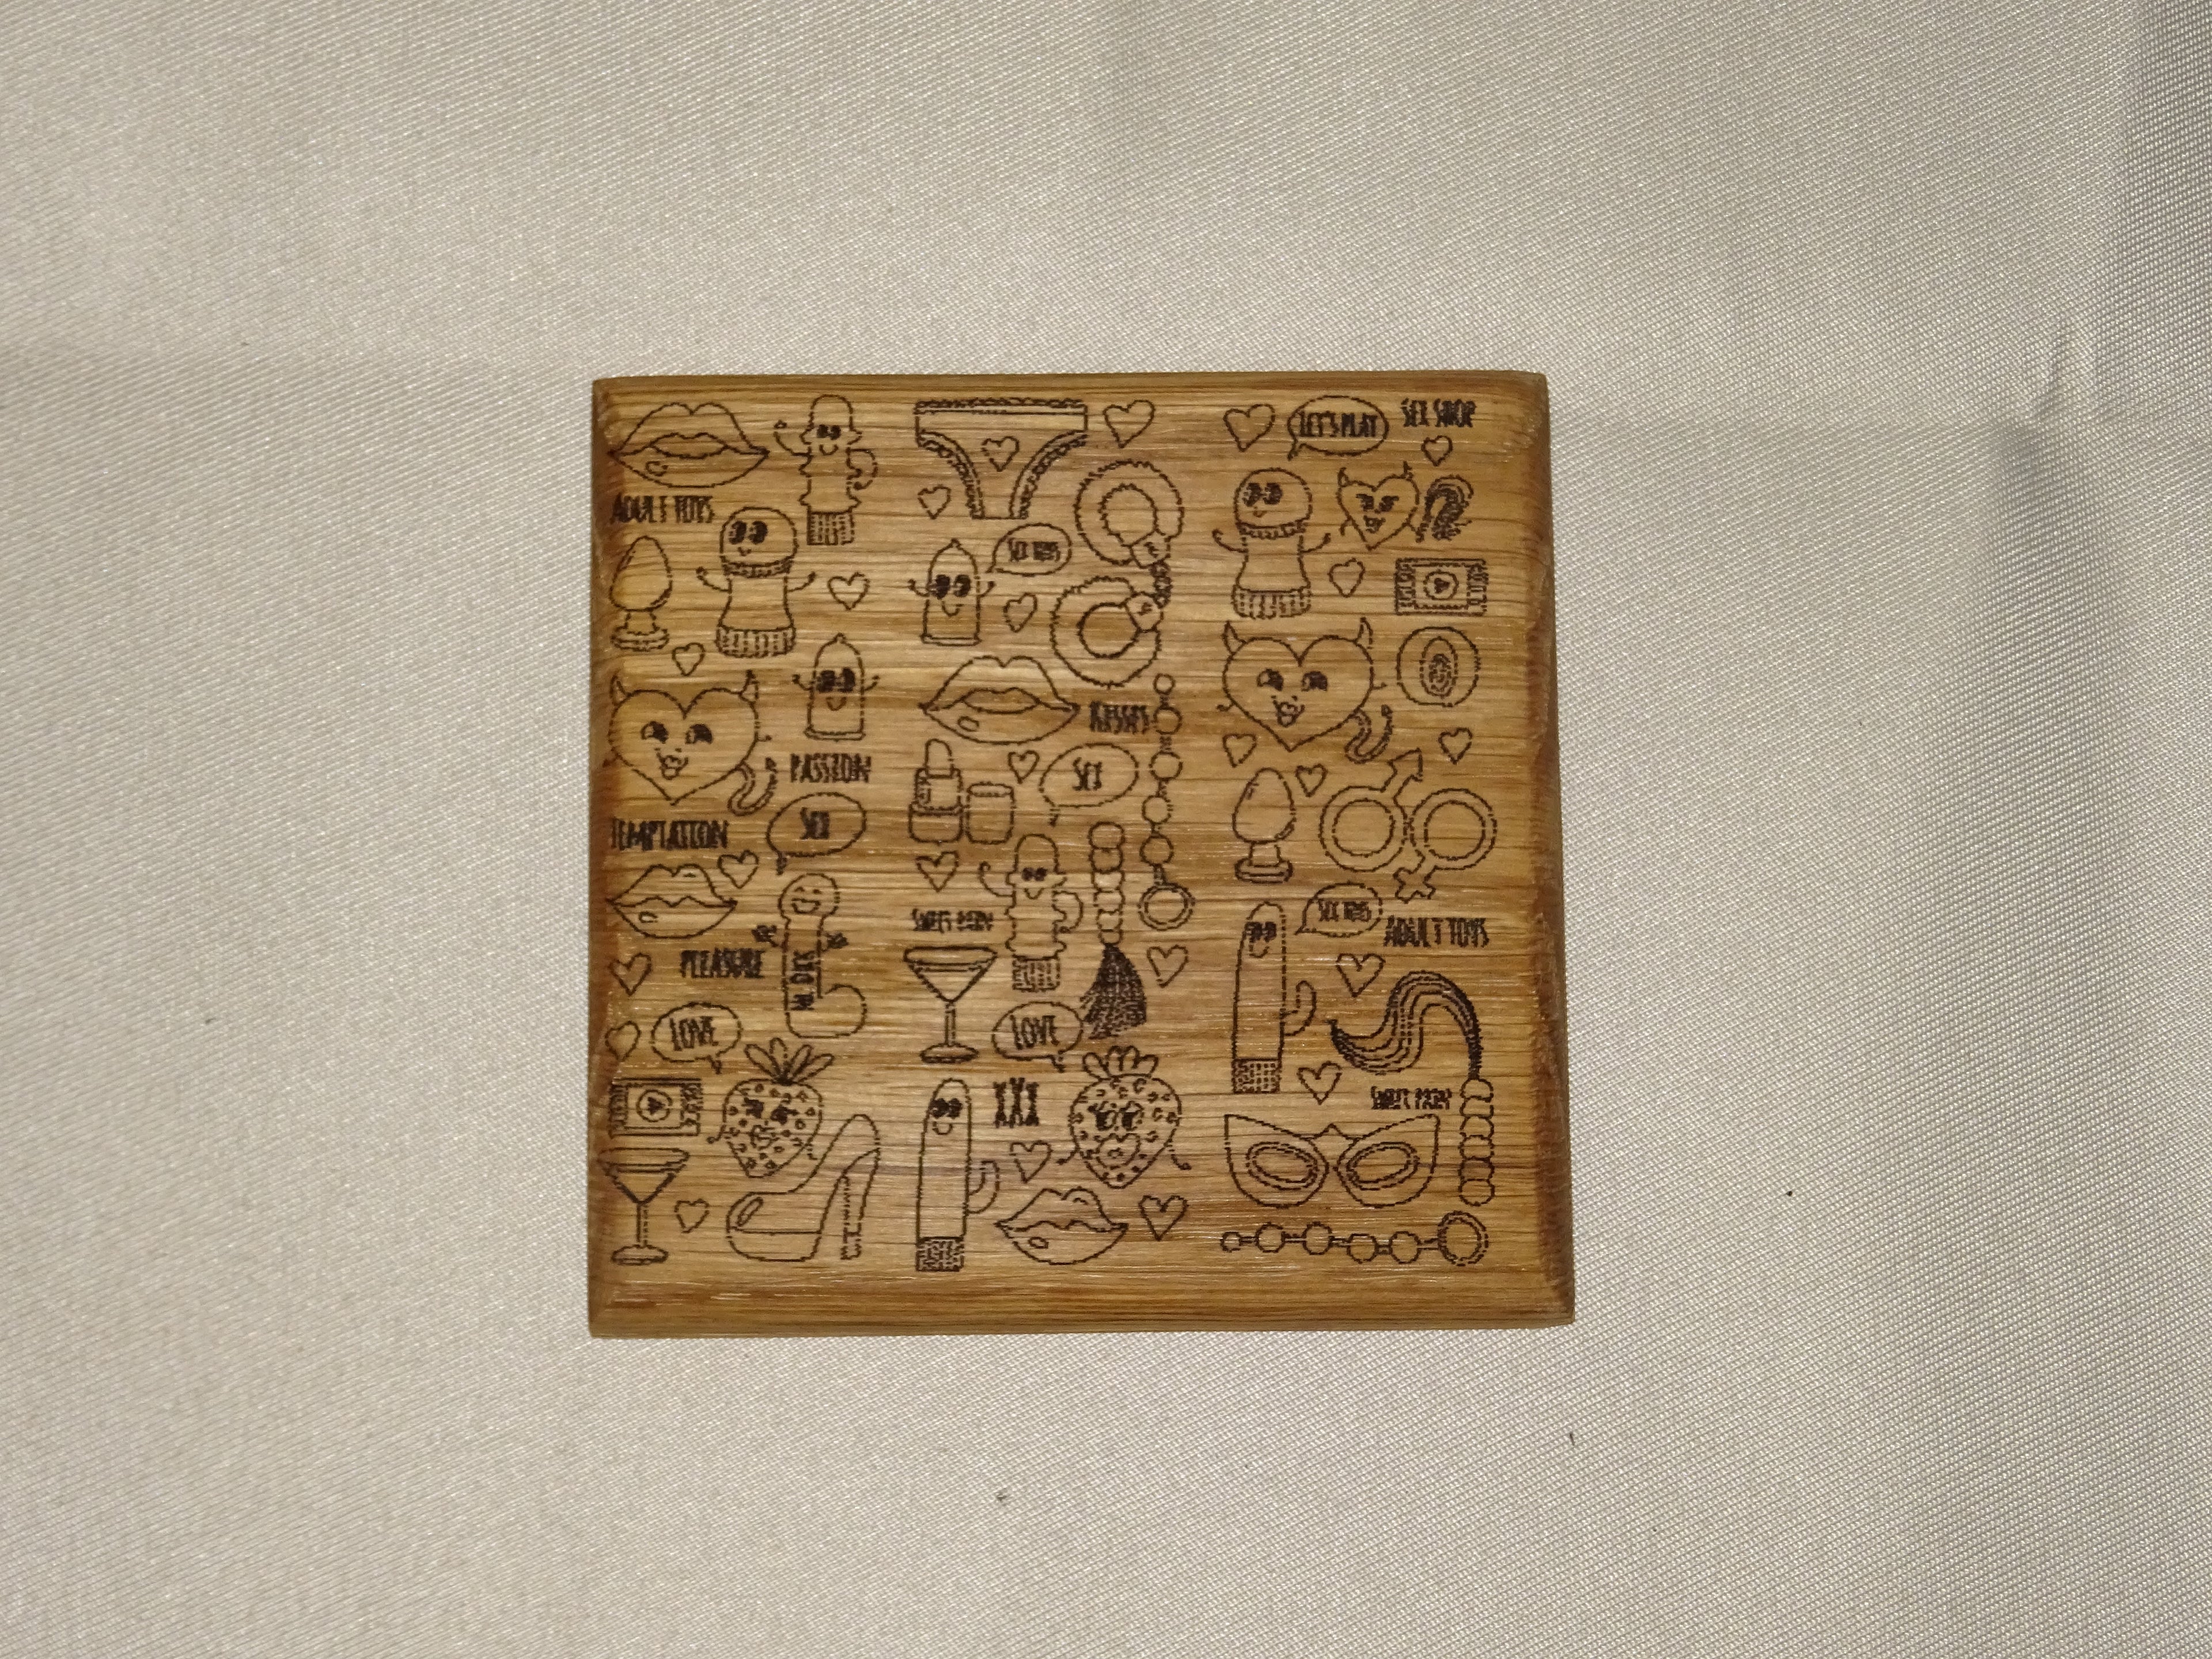 LET'S PLAY
SEX SHOP
ADULT TOYS
SEX TOYS
KISSES
PASSION
SEX
SEX
TEMPTATION
SEX TOYS
ADULT TOYS
PLEASURE
LOVE
LOVE
XXX